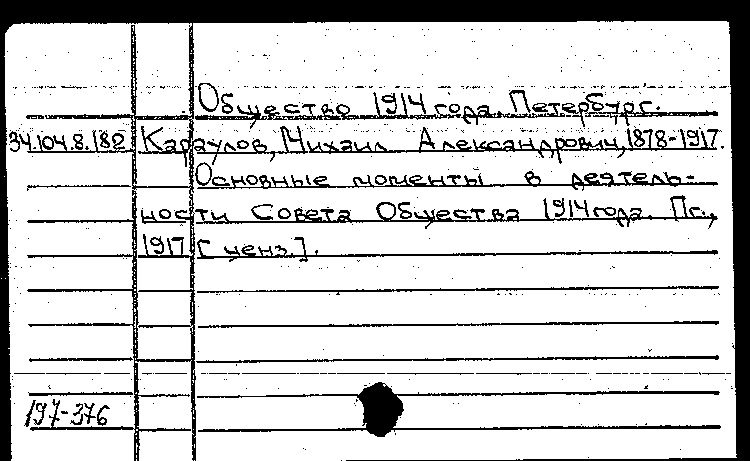 Общество 1914 года. Петербург.
34.104.8.182 Караулов, Михаил Александрович, 1878-1917.
Основные моменты в деятель-
ности Совета Общества 1914 года. Пг.,
1917 [ценз.].
197-376